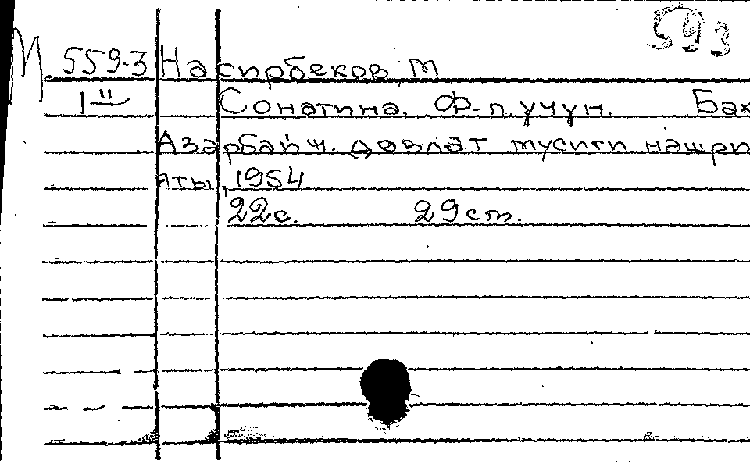 593
М 559-3 Насирбеков, М
I II
Сонатина. Ф-п. учун. Бак
Азәрбайҹ. довләт мусиги нәшри
яты, 1954
22с. 29 ст.